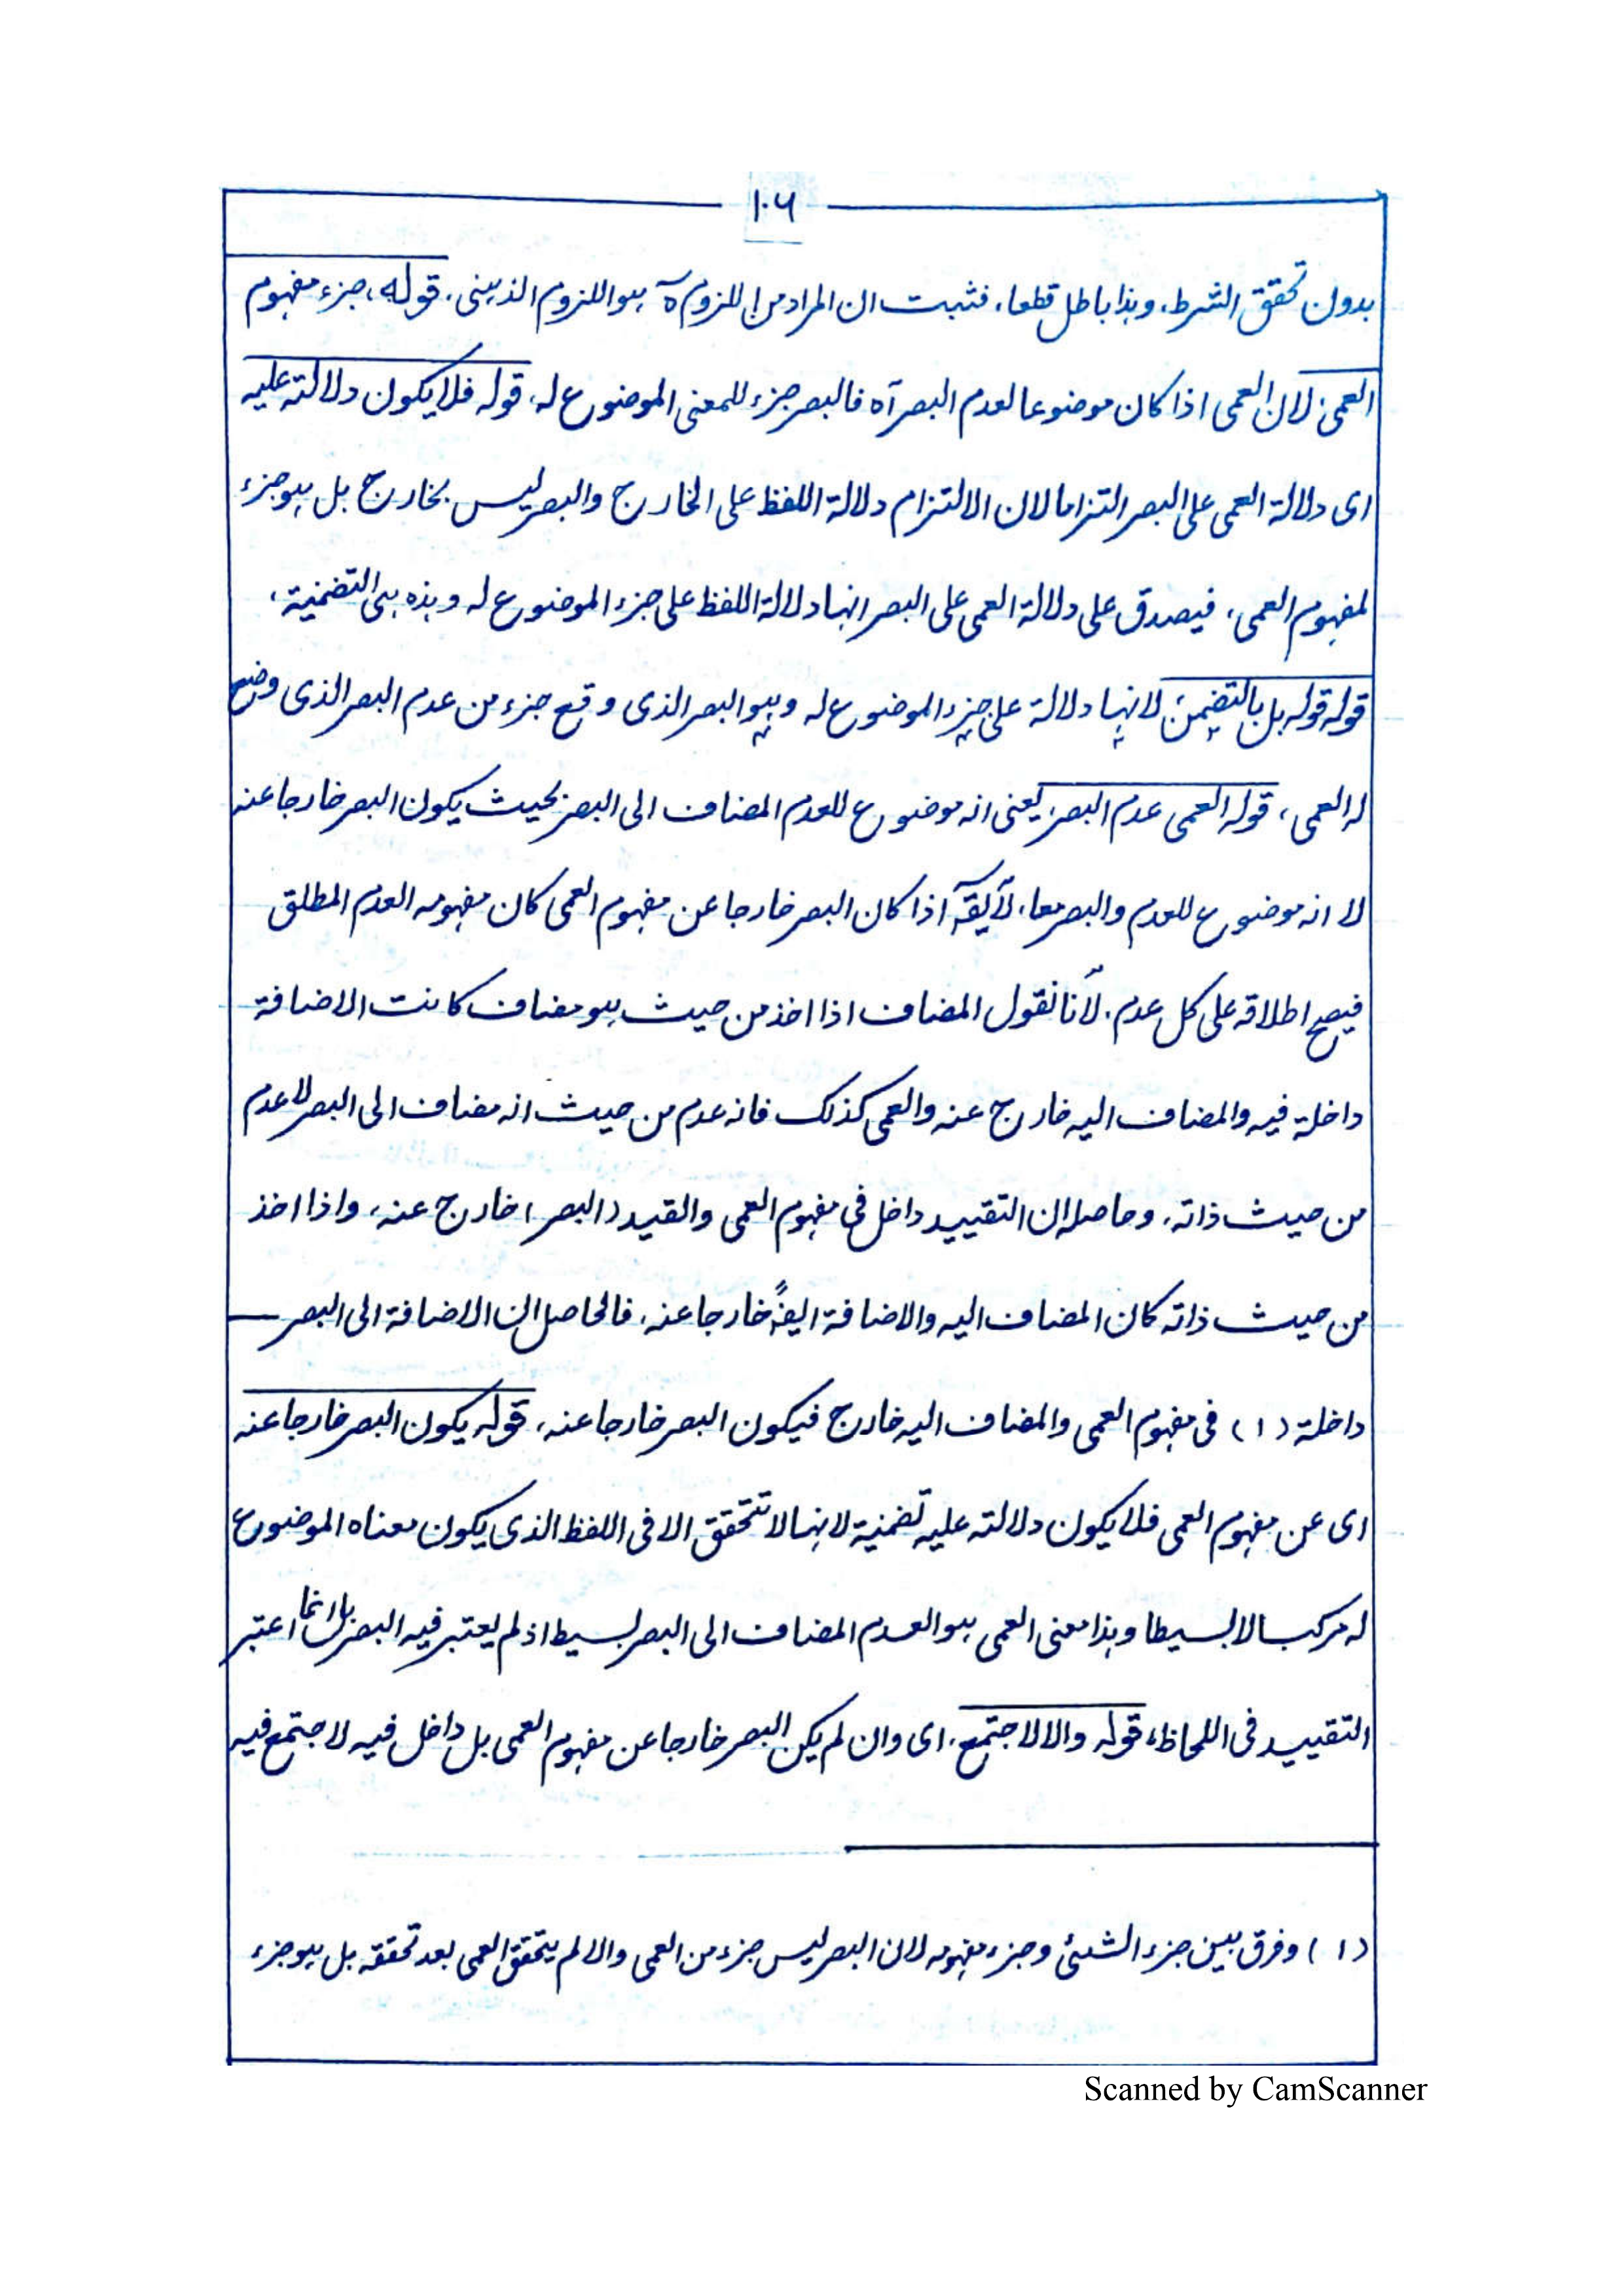 ١٠٦
بدون تحقق الشرط، وہذا باطل قطعا، فثبت ان المراد من اللزوم آہ ہو اللزوم الذہنی، قوله، جزء مفہوم
العمی، لان العمی اذا کان موضوعا لعدم البصر آہ فالبصر جزء للمعنی الموضوع له، قوله فلا یکون دلالته علیه
ای دلالة العمی علی البصر التزاما لان الالتزام دلالة اللفظ علی الخارج والبصر لیس بخارج بل ہو جزء
لمفہوم العمی، فیصدق علی دلالة العمی علی البصر انہا دلالة اللفظ علی جزء الموضوع له وہذہ ہی التضمنیة،
قوله قوله بل بالتضمن، لانہا دلالة علی جزء الموضوع له وہو البصر الذی وقع جزء من عدم البصر الذی وضع
له العمی، قوله العمی عدم البصر، یعنی انه موضوع للعدم المضاف الی البصر بحیث یکون البصر خارجا عنه
لا انه موضوع للعدم والبصر معا، لا یقہ اذا کان البصر خارجا عن مفہوم العمی کان مفہومه العدم المطلق
فیصح اطلاقه علی کل عدم، لانا نقول المضاف اذا اخذ من حیث ہو مضاف کانت الاضافة
داخلة فیه والمضاف الیه خارج عنه والعمی کذلک فانه عدم من حیث انه مضاف الی البصر لا عدم
من حیث ذاته، وحاصله ان التقیید داخل فی مفہوم العمی والقید (البصر) خارج عنه، واذا اخذ
من حیث ذاته کان المضاف الیه والاضافة ایضً خارجا عنه، فالحاصل ان الاضافة الی البصر
داخلة (١) فی مفہوم العمی والمضاف الیه خارج فیکون البصر خارجا عنه، قوله یکون البصر خارجا عنه
ای عن مفہوم العمی فلا یکون دلالته علیه تضمنیة لانہا لا تتحقق الا فی اللفظ الذی یکون معناه الموضوع
له مرکبا لا بسیطا وہذا معنی العمی ہو العدم المضاف الی البصر بسیط اذ لم یعتبر فیه البصر بل انما اعتبر
التقیید فی اللحاظ، قوله والا لاجتمع، ای وان لم یکن البصر خارجا عن مفہوم العمی بل داخل فیه لاجتمع فیه
(١) وفرق بین جزء الشئ وجزء مفہومه لان البصر لیس جزء من العمی والا لم یتحقق العمی بعد تحققه بل ہو جزء
Scanned by CamScanner